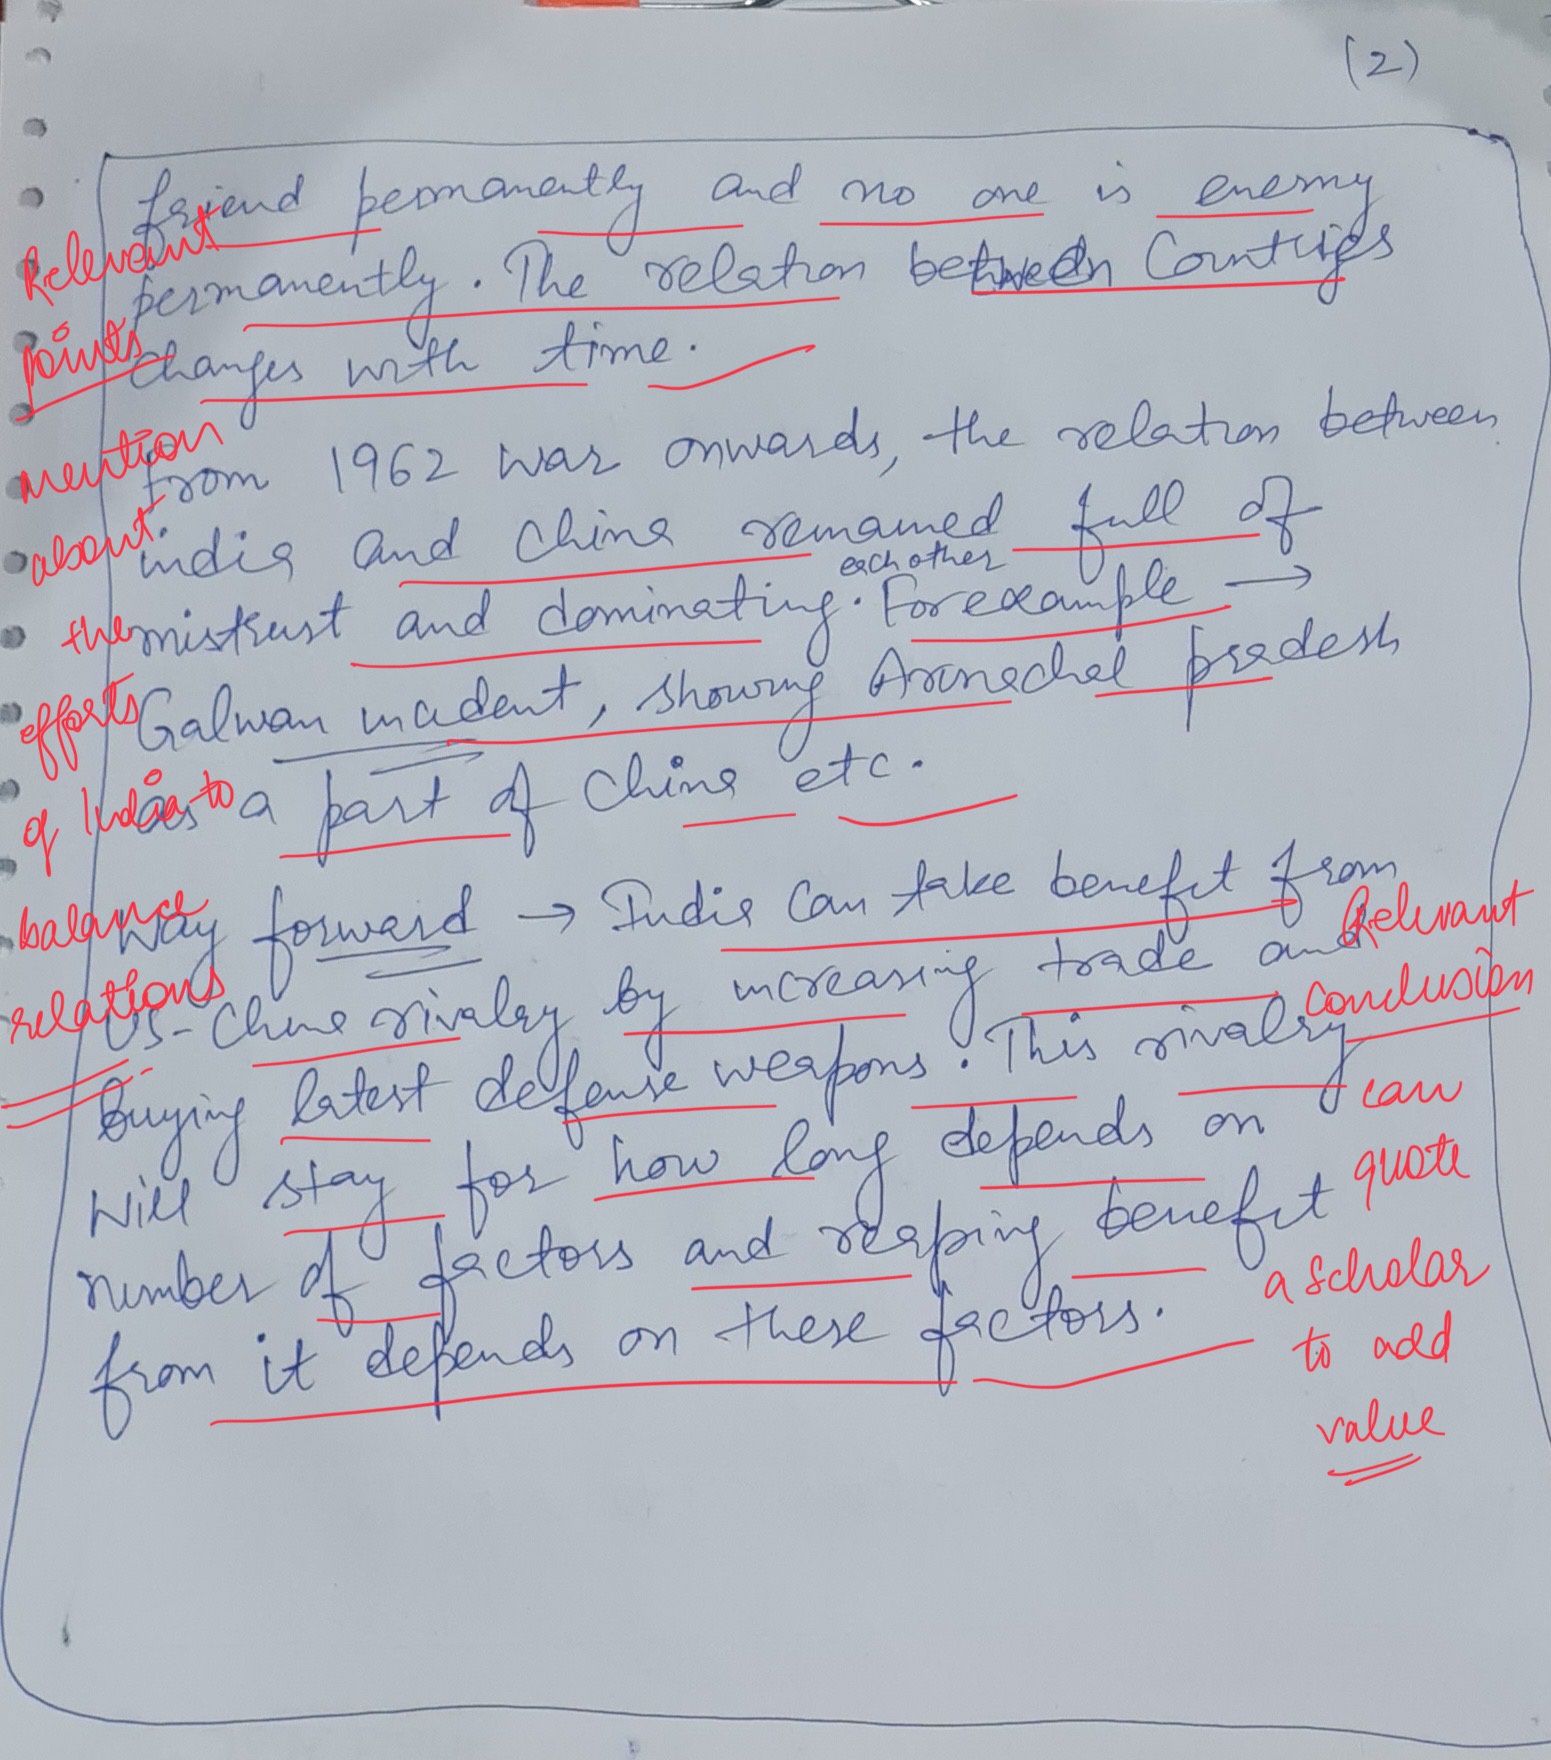 (2)
friend permanently and no one is enemy
permanently. The relation between Countries
changes with time.
from 1962 war onwards, the relation between
india and China remained full of
mistrust and dominating each other. For example →
Galwan incident, showing Arunachal pradesh
as a part of China etc.
Way forward → India can take benefit from
US-China rivalry by increasing trade and
buying latest defense weapons. This rivalry
will stay for how long depends on
number of factors and reaping benefit
from it depends on these factors.
Relevant
points
mention
about
the
efforts
of India to
balance
relations
Relevant
conclusion
can
quote
a scholar
to add
value